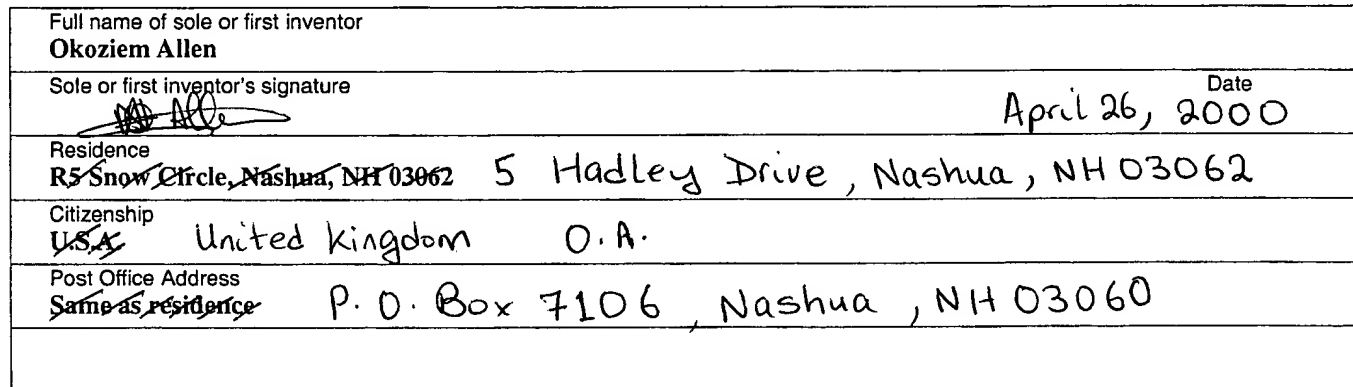 Full name of sole or first inventor
Okoziem Allen
Sole or first inventor's signature
Date
Allen April 26, 2000
Residence
R5 Snow Circle, Nashua, NH 03062 5 Hadley Drive, Nashua, NH 03062
Citizenship
U.S.A. United Kingdom O.A.
Post Office Address
Same as residence P.O. Box 7106, Nashua, NH 03060